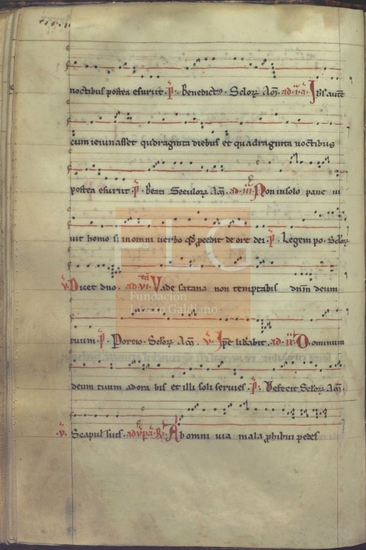 noctibus postea esurut P. Benedict9. Sclor Am. ad .i.a. Ihs autē
cum ieiunasset qudraginta diebus et quadraginta noctibus
postea esuriit P. Beati Seculorꝫ Am. ad .iii. Non in solo pane ui
uit homo s; in omni uerbo qd pcedit de ore dei. P. Legem po. Sclor
V. Dicet dno. ad .vi. Vade satana non temptabis dn̄m deum
FLG
Fundación
Galdiano
tuum. P. Portio. Sclorꝫ Am. V. Ipse libabit. ad .ii. Dominum
deum tuum adora bis et illi soli seruies. P. Defecit Sclorꝫ Am.
V. Scapul suis. ad upa R. Ab omni uia mala phibui pedes